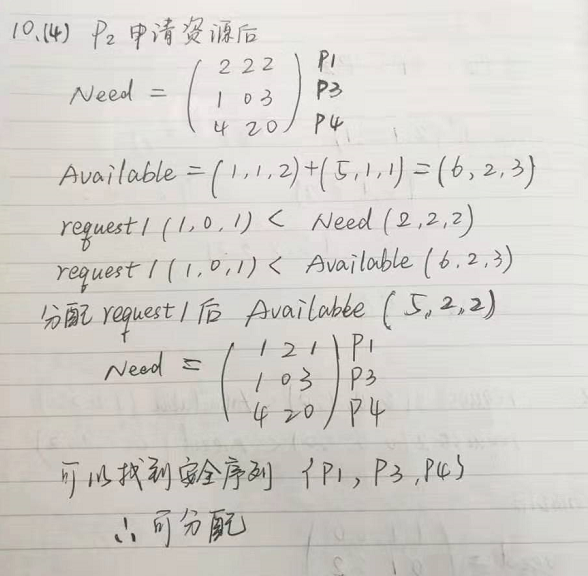 10.(4) P2 申请资源后
Need = ( 2 2 2 ) P1
1 0 3 P3
4 2 0 P4
Available = (1,1,2)+(5,1,1)=(6,2,3)
request1(1,0,1) < Need(2,2,2)
request1(1,0,1) < Available(6,2,3)
分配request1后 Available (5,2,2)
Need = ( 1 2 1 ) P1
1 0 3 P3
4 2 0 P4
可以找到安全序列 {P1, P3, P4}
∴可分配